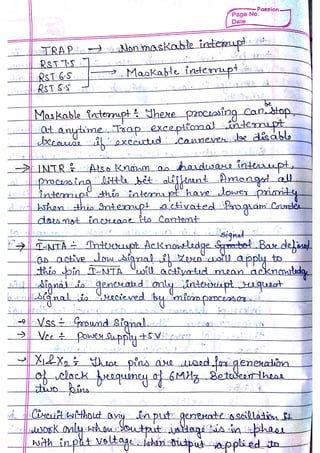 Passion
Page No.
Date
TRAP → Nonmaskable interrupt
RST 7.5
RST 6.5 → Maskable interrupt
RST 5.5
Maskable interrupt : There processing can be stop
at anytime. Trap exceptional interrupt
because if executed cannever be disable
→ INTR : Also Known as hardware interrupt,
processing little bit different Amongst all
interrupt this interrupt have lower priority
when this Interrupt activated Program Counter
does not increase to Content
→ I-NTA ÷ Interrupt Acknowledge Signal Bar defined
as active low signal if zero will apply to
this pin I-NTA will activated mean acknowledge
signal is generated only interrupt request
signal is recieved by microprocessor.
→ Vss ÷ Ground Signal
→ Vcc ÷ power supply +5V
→ X1 & X2 : These pins are used for generation
of clock frequency of 6MHz Between these
two pins
Circuit without any input generate oscillation It
work only when output voltage is in phase
with input voltage. When output applied to